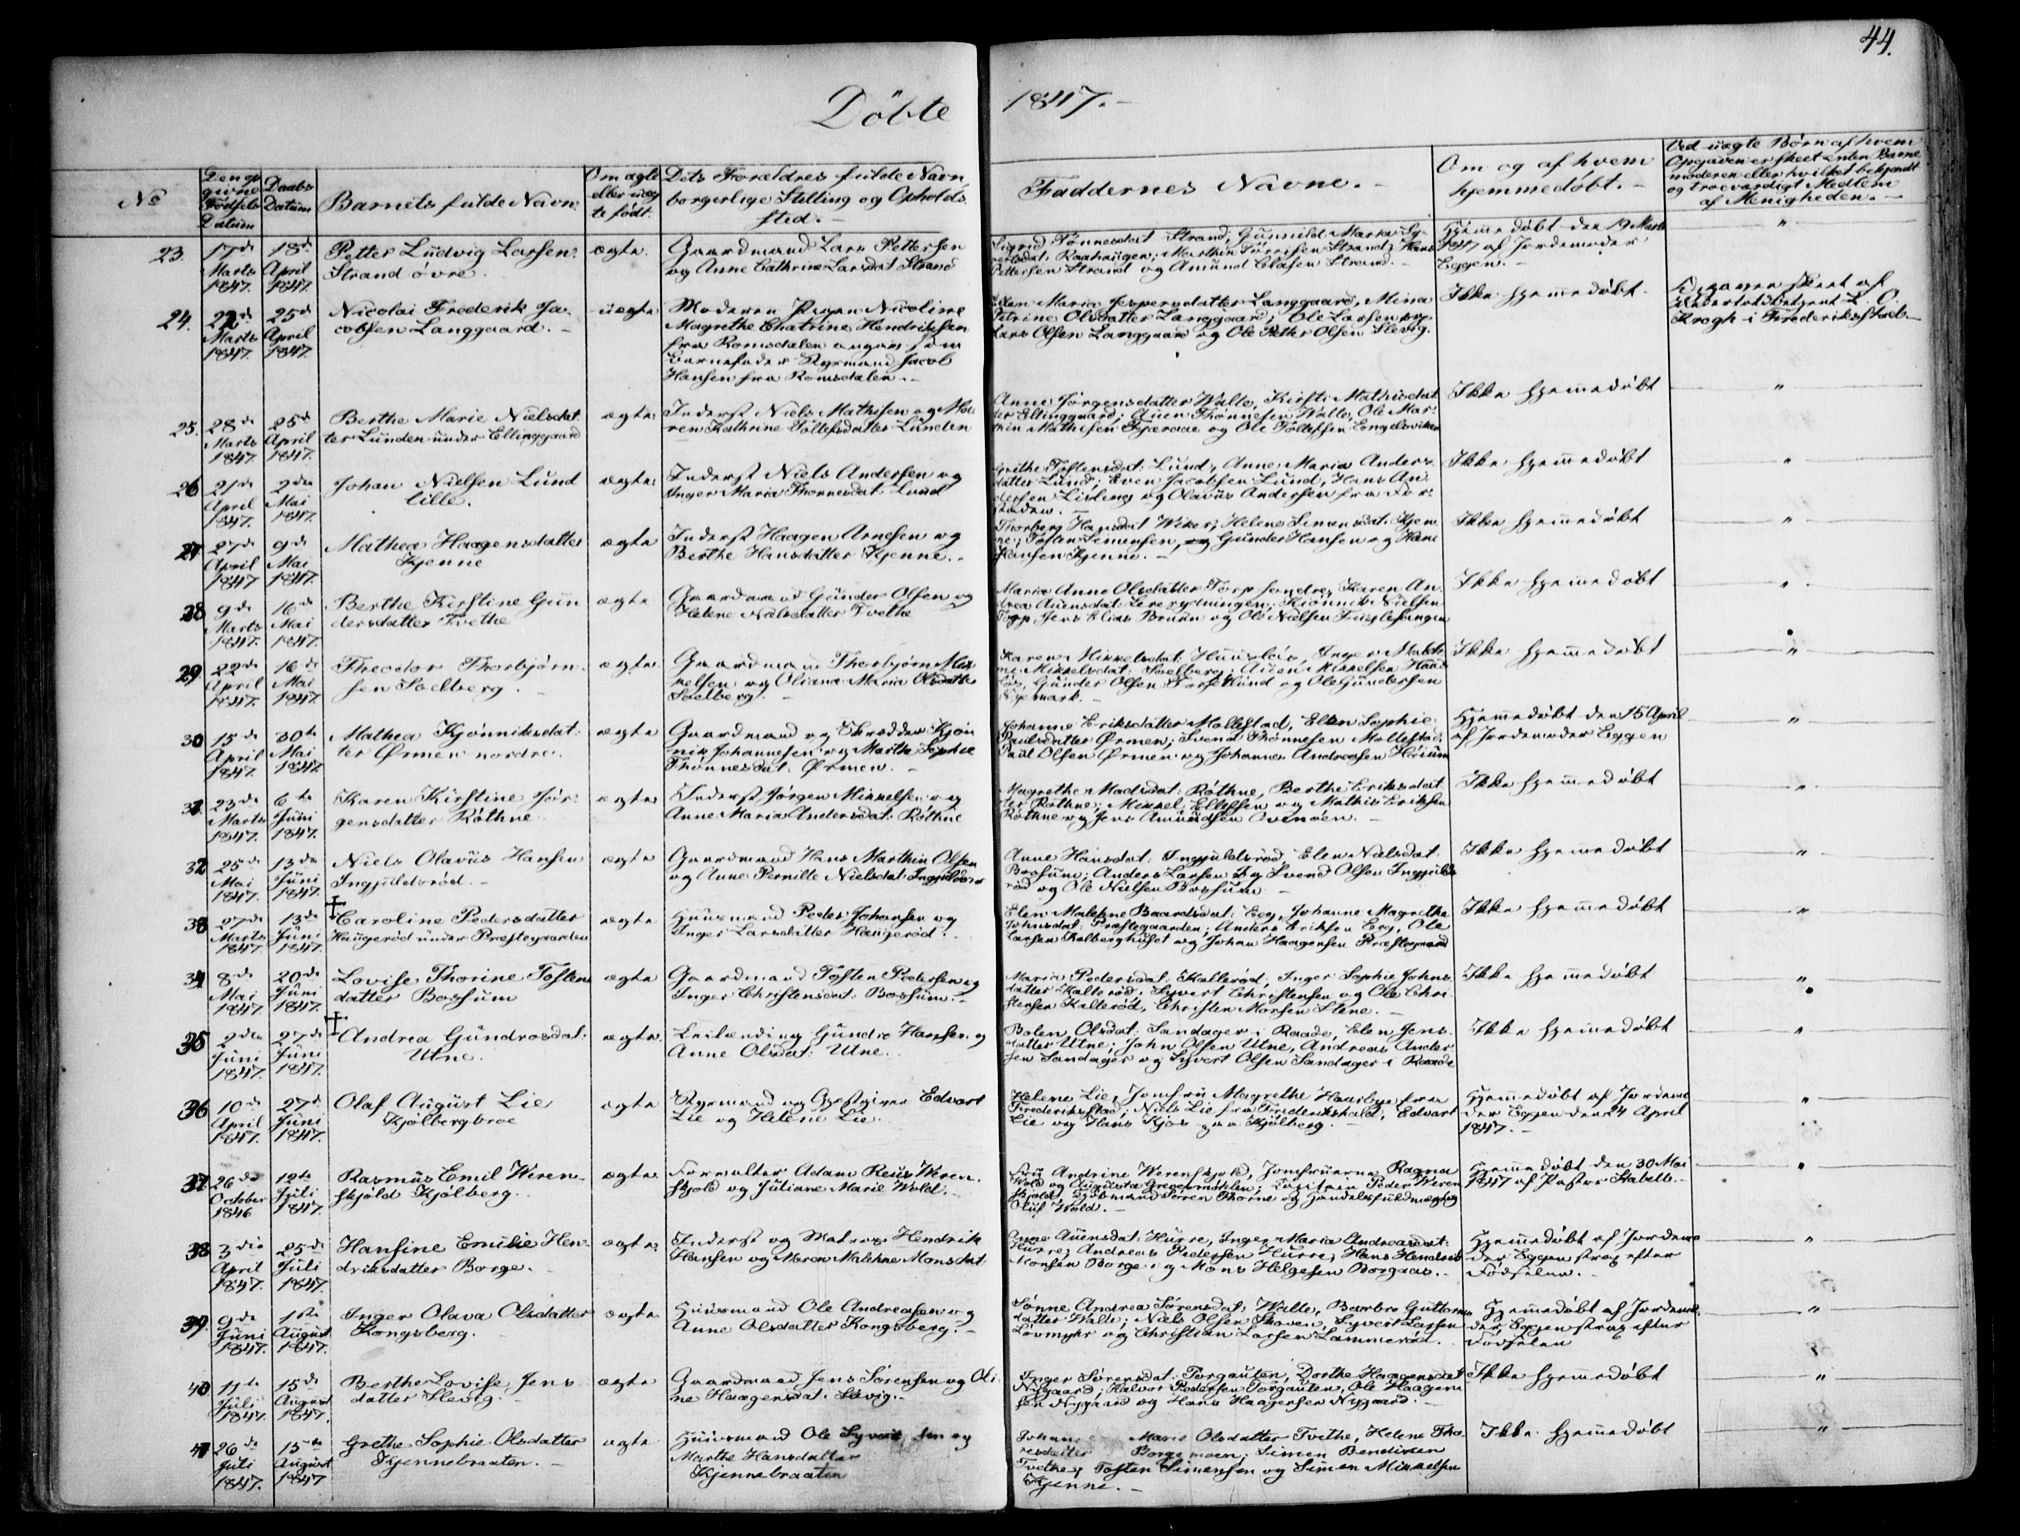 44.
Døbte 1847.-
No
Den opgivne Fødsels Datum
Daabs Datum
Barnets fulde Navn
Om ægte eller uægte født.
Dets Forældres fulde Navn borgerlige Stilling og Opholdssted.-
Faddernes Navne.-
Om og af hvem hjemmedøbt.-
Ved uægte Børn af hvem Opgaven er skeet enten Barnemoderen eller hvilket bekjendt og troeværdigt Medlem af Menigheden.-
23. 17de Marts 1847. 18de April 1847.
Petter Ludvig Larsen
Strand øvre.
ægte.
Gaardmand Lars Pettersen
og Anne Cathrine Larsdat Strand
Sigrid Tønnesdat Strand, Gunnild Maria
Raahaugen; Marthin Strand; Hans
Pettersen Strand og Amund Olafsen Strand.-
Hjemmedøbt den 19 Marts
1847 af Jordemoder
Eggen.-
24. 22d Marts 1847. 25d April 1847.
Nicolai Frederik Ja-
cobsen Langgaard.-
uægte
Moderen Pigen Nicoline
Magrethe Chatrine Hendriksen
fra Romsdalen angav som
Barnefader Styrmand Jacob
Hansen fra Romsdalen.-
Maria Jespersdatter Langgaard, Mina
Olsdatter Langgaard; Ole Larsen
Lars Olsen Langgaard og Ole Petter Olsen Slevig.
Ikke hjemmedøbt.
Opgaven skeet af
L. O.
Krogh i Frederiksstad.-
25. 28de Marts 1847. 25de April 1847.
Berthe Marie Nielsdat
ter Lunden under Ellinggaard
ægte
Inderst Niels Mathisen og Ma-
ren Kathrine Tollefsdatter Lunden
Anne Jørgensdatter Walle, Kirsti Mathisdat
ter Ellinggaard; Auen Thønnesen Walle, Ole Mar-
thin Mathisen og Ole Tollefsen Engelsviken
Ikke hjemmedøbt
26 21de April 1847. 2den Mai 1847.
Johan Nielsen Lund
lille.
ægte
Inderst Niels Andersen og
Inger Maria Thønnesdat. Lund
Grethe Tostensdat: Lund, Anne Maria Anders-
datter Lund; Even Jacobsen Lund, Hans An-
dersen Lisleng og Olavus Andersen fra
Ikke hjemmedøbt
27 27de April 1847 9de Mai 1847.
Mathea Haagensdatter
Kjenne
ægte
Inderst Haagen Arnesen og
Berthe Hansdatter Kjenne.-
Thorberg Hansdat Wiker, Helene Simensdat: Kjen-
ne; Tosten Simensen, Gunder Hansen og Hans
Hansen Kjenne.-
Ikke hjemmedøbt
28 9de Marts 1847. 16de Mai 1847.
Berthe Kirstine Gun
dersdatter Tvethe
ægte
Gaardmand Gunder Olsen og
Helene Nielsdatter Tvethe
Maria Anne Olsdatter Torp søndre, Karen An-
drea Auensdat: ; Kjønnik Nielsen
Torp, Jens Elias Bruun og Ole Nielsen
Ikke hjemmedøbt
29 22de April 1847. 16de Mai 1847.
Theodor Thorbjørn-
sen Soelberg.
ægte.
Gaardmand Thorbjørn Mik
kelsen og Oliana Maria Olsdatter
Soelberg.-
Karen Mikkelsdat: Huusløs, Malek-
ne Mikkelsdat: Soelberg; Auen Mikkelsen Huus-
løs, Gunder Olsen og Ole Gundersen
Ikke hjemmedøbt
30 15de April 1847. 30te Mai 1847.
Mathea Kjønniksdat-
ter Ørmen nordre.
ægte
Gaardmand og Skrædder Kjøn-
nik Johannesen og Marthe Sophie
Thønnesdat: Ørmen.-
Johanne Eriksdatter Mollestad, Ellen Sophie
Paulsdatter Ørmen; Svend Thønnesen Mollestad,
Paul Olsen Ørmen og Johannes Andreasen Hørium
Hjemmedøbt den 15 April
af Jordemoder Eggen
31. 23de Marts 1847. 6te Juni 1847.
Karen Kirstine Jør-
gensdatter Røthne
ægte
Inderst Jørgen Mikkelsen og
Anne Maria Andersdat: Røthne
Magrethe Madsdat: Røthne, Berthe Eriksdat-
ter Røthne; Mikkel Ellefsen og Mathis Eriksen
Røthne og Jens Amundsen
Ikke hjemmedøbt
32 25de Mai 1847. 13de Juni 1847.
Niels Olavus Hansen
Ingjuldsrød.-
ægte
Gaardmand Hans Marthin Olsen
og Anne Pernille Nielsdat Ingjuldsrød
Anne Hansdat: Ingjuldsrød, Elen Nielsdat:
Bossum; Anders Larsen Svend Olsen Ingjulds
rød og Ole Nielsen Bossum.-
Ikke hjemmedøbt
33 27de Marts 1847. 13de Juni 1847.
Caroline Pedersdatter
Haugerød under Præstegaarden
ægte
Huusmand Peder Johansen og
Inger Larsdatter Haugerød.-
Elen Malehne Baardsdat: Eeg, Johanne Magrethe
Johnsdat: Præstegaarden; Anders Eriksen Eeg, Ole
Larsen Kolberghuset og Johan Haagensen Præstegaard
Ikke hjemmedøbt
34 8de Mai 1847. 20de Juni 1847.
Lovise Thorine Tosten
datter Bossum
ægte
Gaardmand Tosten Pedersen og
Inger Christensdat: Bossum.-
Maria Pedersdat: Kallerød, Inger Sophie Johns-
datter Kallerød; Syvert Christensen og Ole Chri-
stensen Kallerød, Christen Morsen Stene.
Ikke hjemmedøbt
35 2den Juni 1847. 27de Juni 1847.
Andrea Gundrosdat:
Utne.
ægte.
Leilænding Gundro Hansen og
Anne Olsdat: Utne.
Bolen, Olsdat: Sandager i Raade, Elen Jens-
datter Utne; John Olsen Utne, Andreas Ander-
sen Sandager og Syvert Olsen Sandager i Raade
Ikke hjemmedøbt
36 10de April 1847. 27de Juni 1847.
Olaf August Lie
Kjølbergbroe
ægte
Styrmand og Gjæstgiver Edvart
Lie og Helene Lie.
Helene Lie, Jomfru Magrethe Haarbye fra
Frederikstad; Niels Lie fra Frederikshald, Edvart
Lie og Hans Kjøs paa Kjølberg.-
Hjemmedøbt af Jordemo
der Eggen den 24 April
1847.-
37 26de October 1846 12te Juli 1847.
Rasmus Emil Weren-
skjold Kjølberg.
ægte
Forvalter Adam Reus Weren-
skjold og Juliane Marie Wold.-
Fru Andrine Werenskjold, Jomfruerne Ragna
Wold og Augusta; Capitain Peder Weren
skjold, Søren Thorne og Handelsfuldmægtig
Oluf Wold.-
Hjemmedøbt den 30 Mai
1847 af Pastor Stabell.-
38 3die April 1847. 25de Juli 1847.
Hansine Emilie Hen-
driksdatter Borge.
ægte.
Inderst og Matros Hendrik
Hansen og Maren Malehne Monsdat
Anne Auensdat: Hurre, Inger Maria Andreasdat:
Hurre; Andreas Pedersen Hurre, Hans Hendrik
Monsen Borge og Mons Helgesen Borgaas.-
Hjemmedøbt af Jordemo
der Eggen strax efter
Fødselen.-
39. 9de Juni 1847. 1ste August 1847.
Inger Olava Olsdatter
Kongsberg.
ægte
Huusmand Ole Andreasen og
Anne Olsdatter Kongsberg.-
Sønne Andrea Sørensdat: Walle, Barbro Guttorms
datter Walle; Niels Olsen Skoven, Syvert Larsen
Løvmyhr og Christian Larsen Lammerød.
Hjemmedøbt af Jordemo
der Eggen strax efter
Fødselen
40 11te Juli 1847. 15de August 1847.
Berthe Lovise Jens
datter Slevig.
ægte
Gaardmand Jens Sørensen og Oli
ne Haagensdat: Slevig.
Inger Sørensdat: Torgauten, Dorthe Haagensdat
Nygaard; Halvor Pedersen Torgauten, Ole Haagen-
sen Nygaard og Hans Haagensen Nygaard.-
Ikke hjemmedøbt
41 26de Juli 1847. 15de August 1847
Grethe Sophie Olsdatter
Kjennebraaten.-
ægte
Huusmand Ole Syvertsen og
Marthe Hansdatter
Kjennebraaten
Johan Marie Olsdatter Tvethe, Helene Tho-
resdatter Borgemoen; Simen Bendixen
Tvethe, Tosten Simensen og Simen Mikkelsen
Kjenne.-
Ikke hjemmedøbt